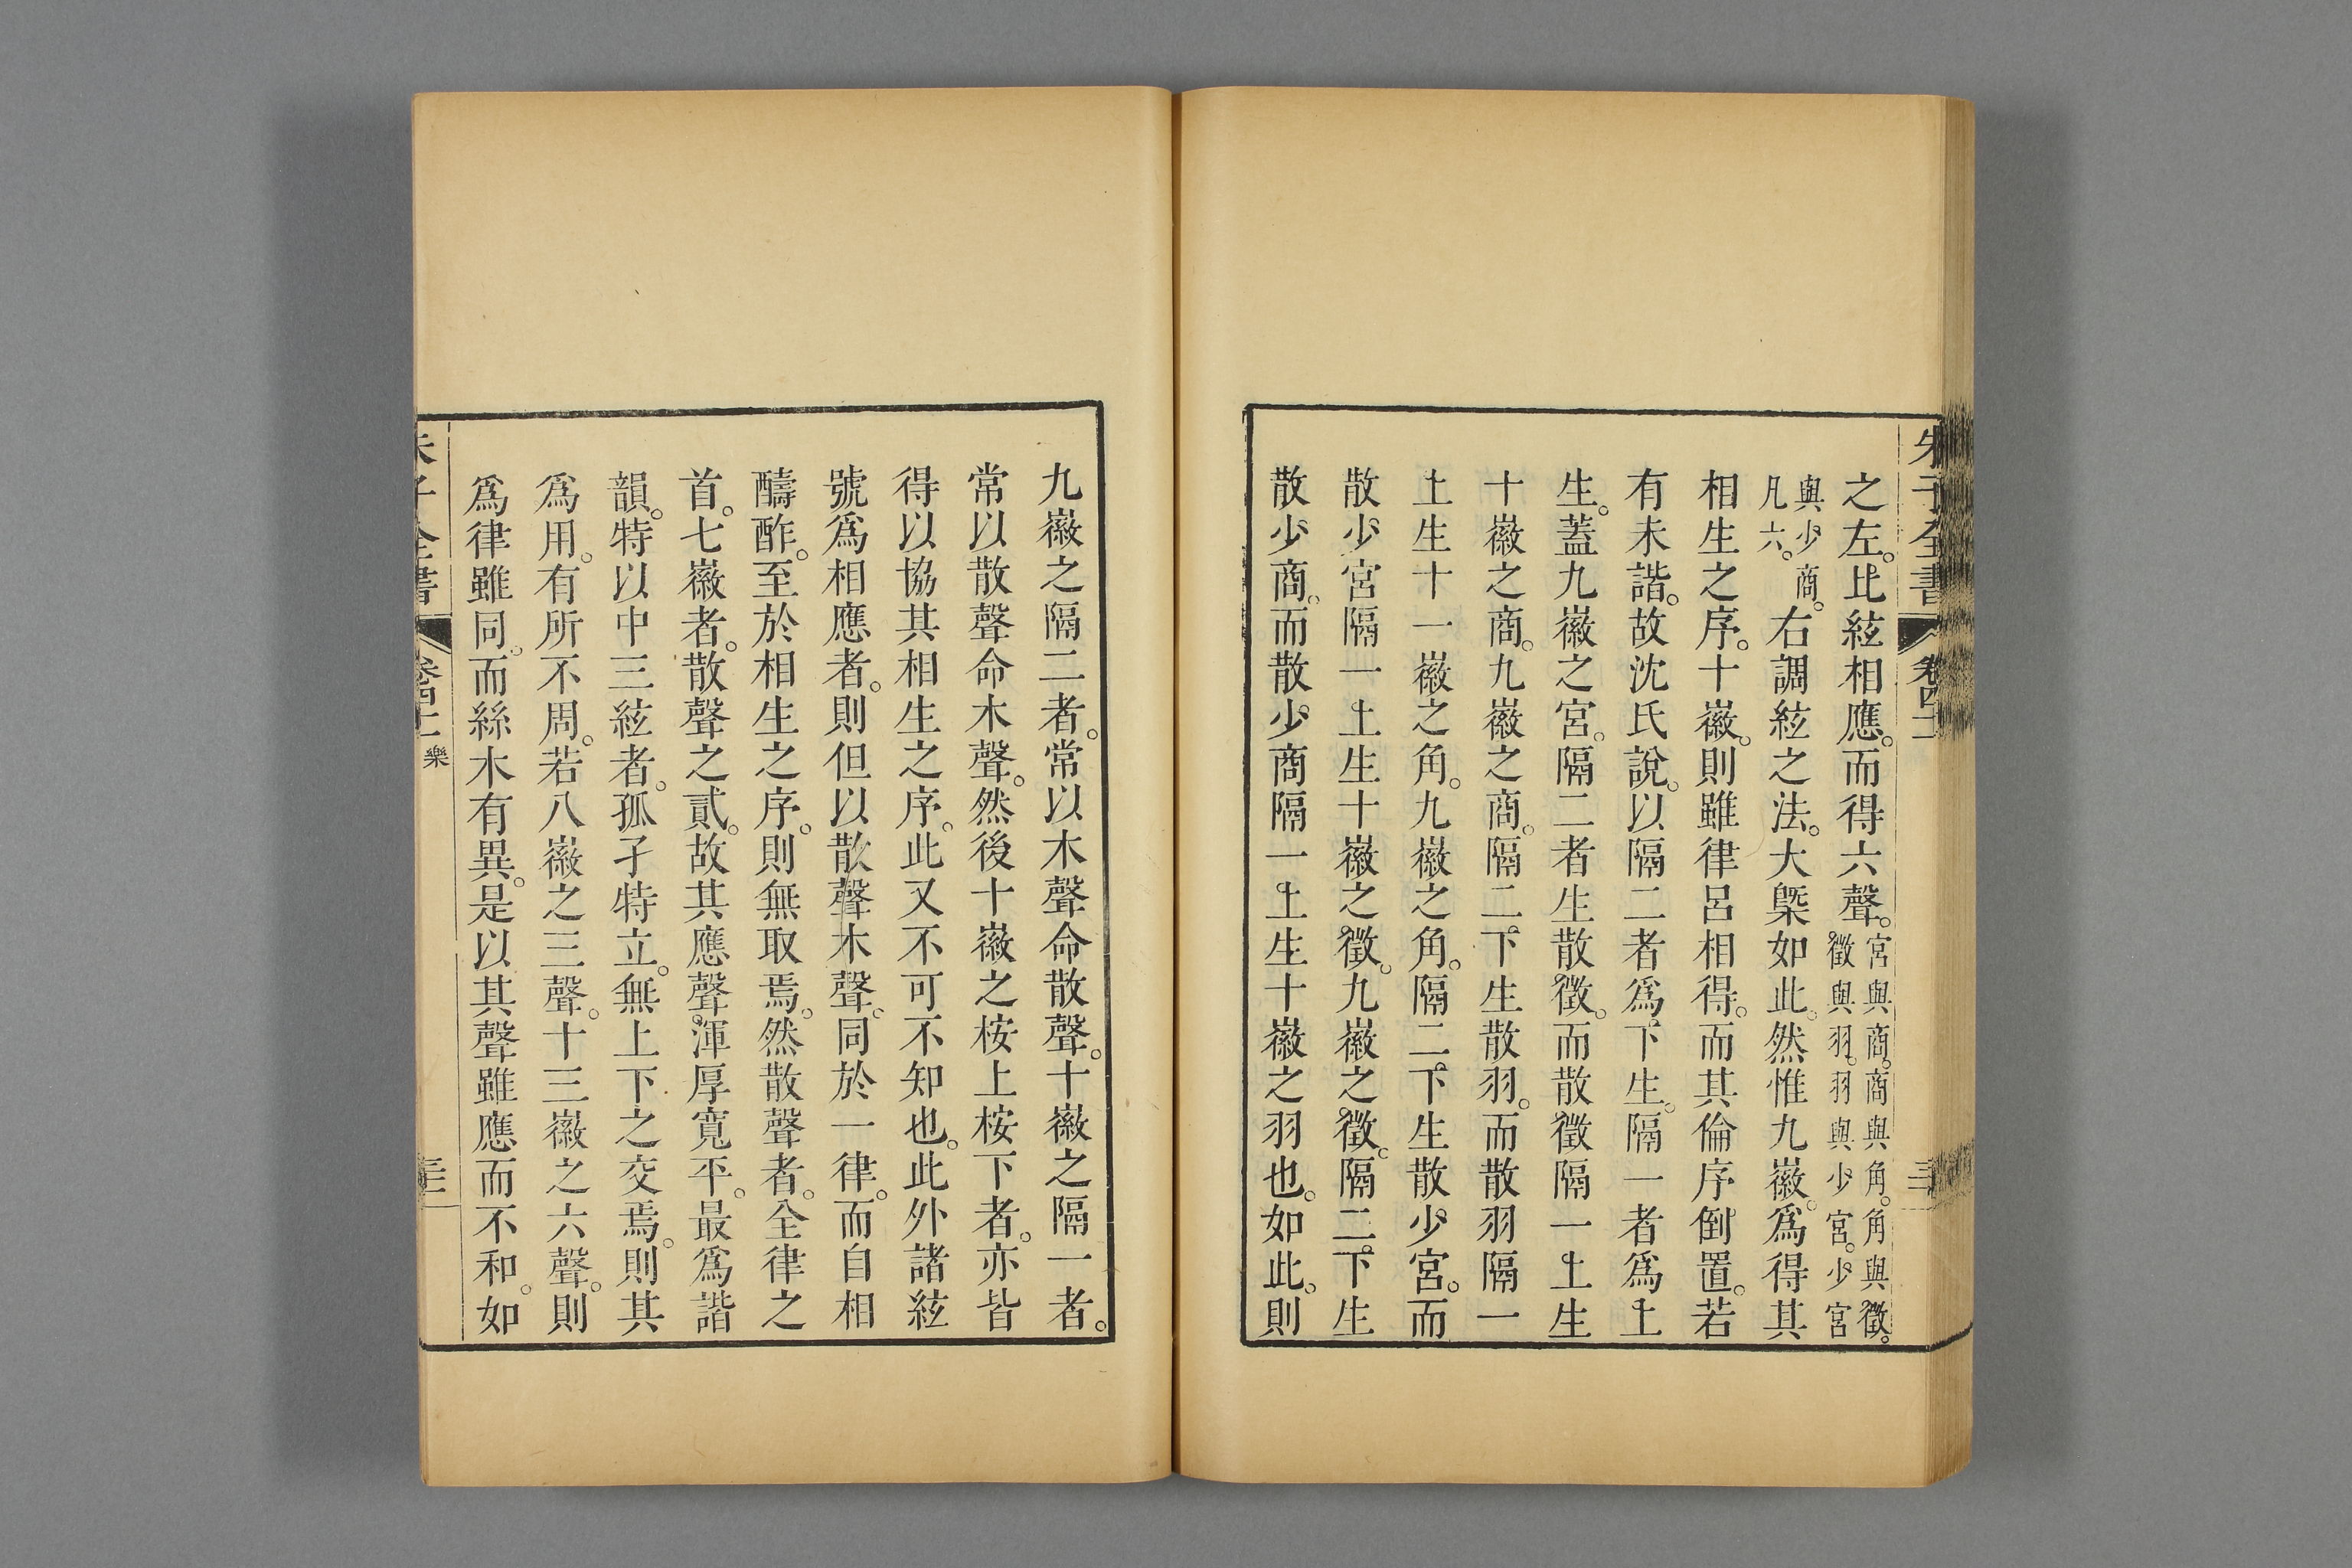 朱子全書 卷四十一
之左。比絃相應。而得六聲。宮與商。商與角。角與徵。徵與羽。羽與少宮。少宮
與少商。凡六。右調絃之法。大槩如此。然惟九徽。爲得其
相生之序。十徽。則雖律呂相得。而其倫序倒置。若
有未諧。故沈氏說。以隔二者爲。下生。隔一者爲上
生。蓋九徽之宮。隔二者生散徵。而散徵隔一上生
十徽之商。九徽之商。隔二。下生散羽。而散羽隔一
上生十一徽之角。九徽之角。隔二。下生散少宮。而
散少宮隔一上生十徽之徵。九徽之徵。隔二。下生
散少商。而散少商隔一上生十徽之羽也。如此。則
九徽之隔二者。常以木聲命散聲。十徽之隔一者。
常以散聲命木聲。然後十徽之桉上桉下者。亦皆
得以協其相生之序。此又不可不知也。此外諸絃
號爲相應者。則但以散聲木聲。同於一律。而自相
醻酢。至於相生之序。則無取焉。然散聲者。全律之
首。七徽者。散聲之貳。故其應聲。渾厚寬平。最爲諧
韻。特以中三絃者。孤孑特立。無上下之交焉。則其
爲用。有所不周。若八徽之三聲。十三徽之六聲。則
爲律雖同。而絲木有異。是以其聲雖應而不和。如
朱子全書 卷四十一 樂